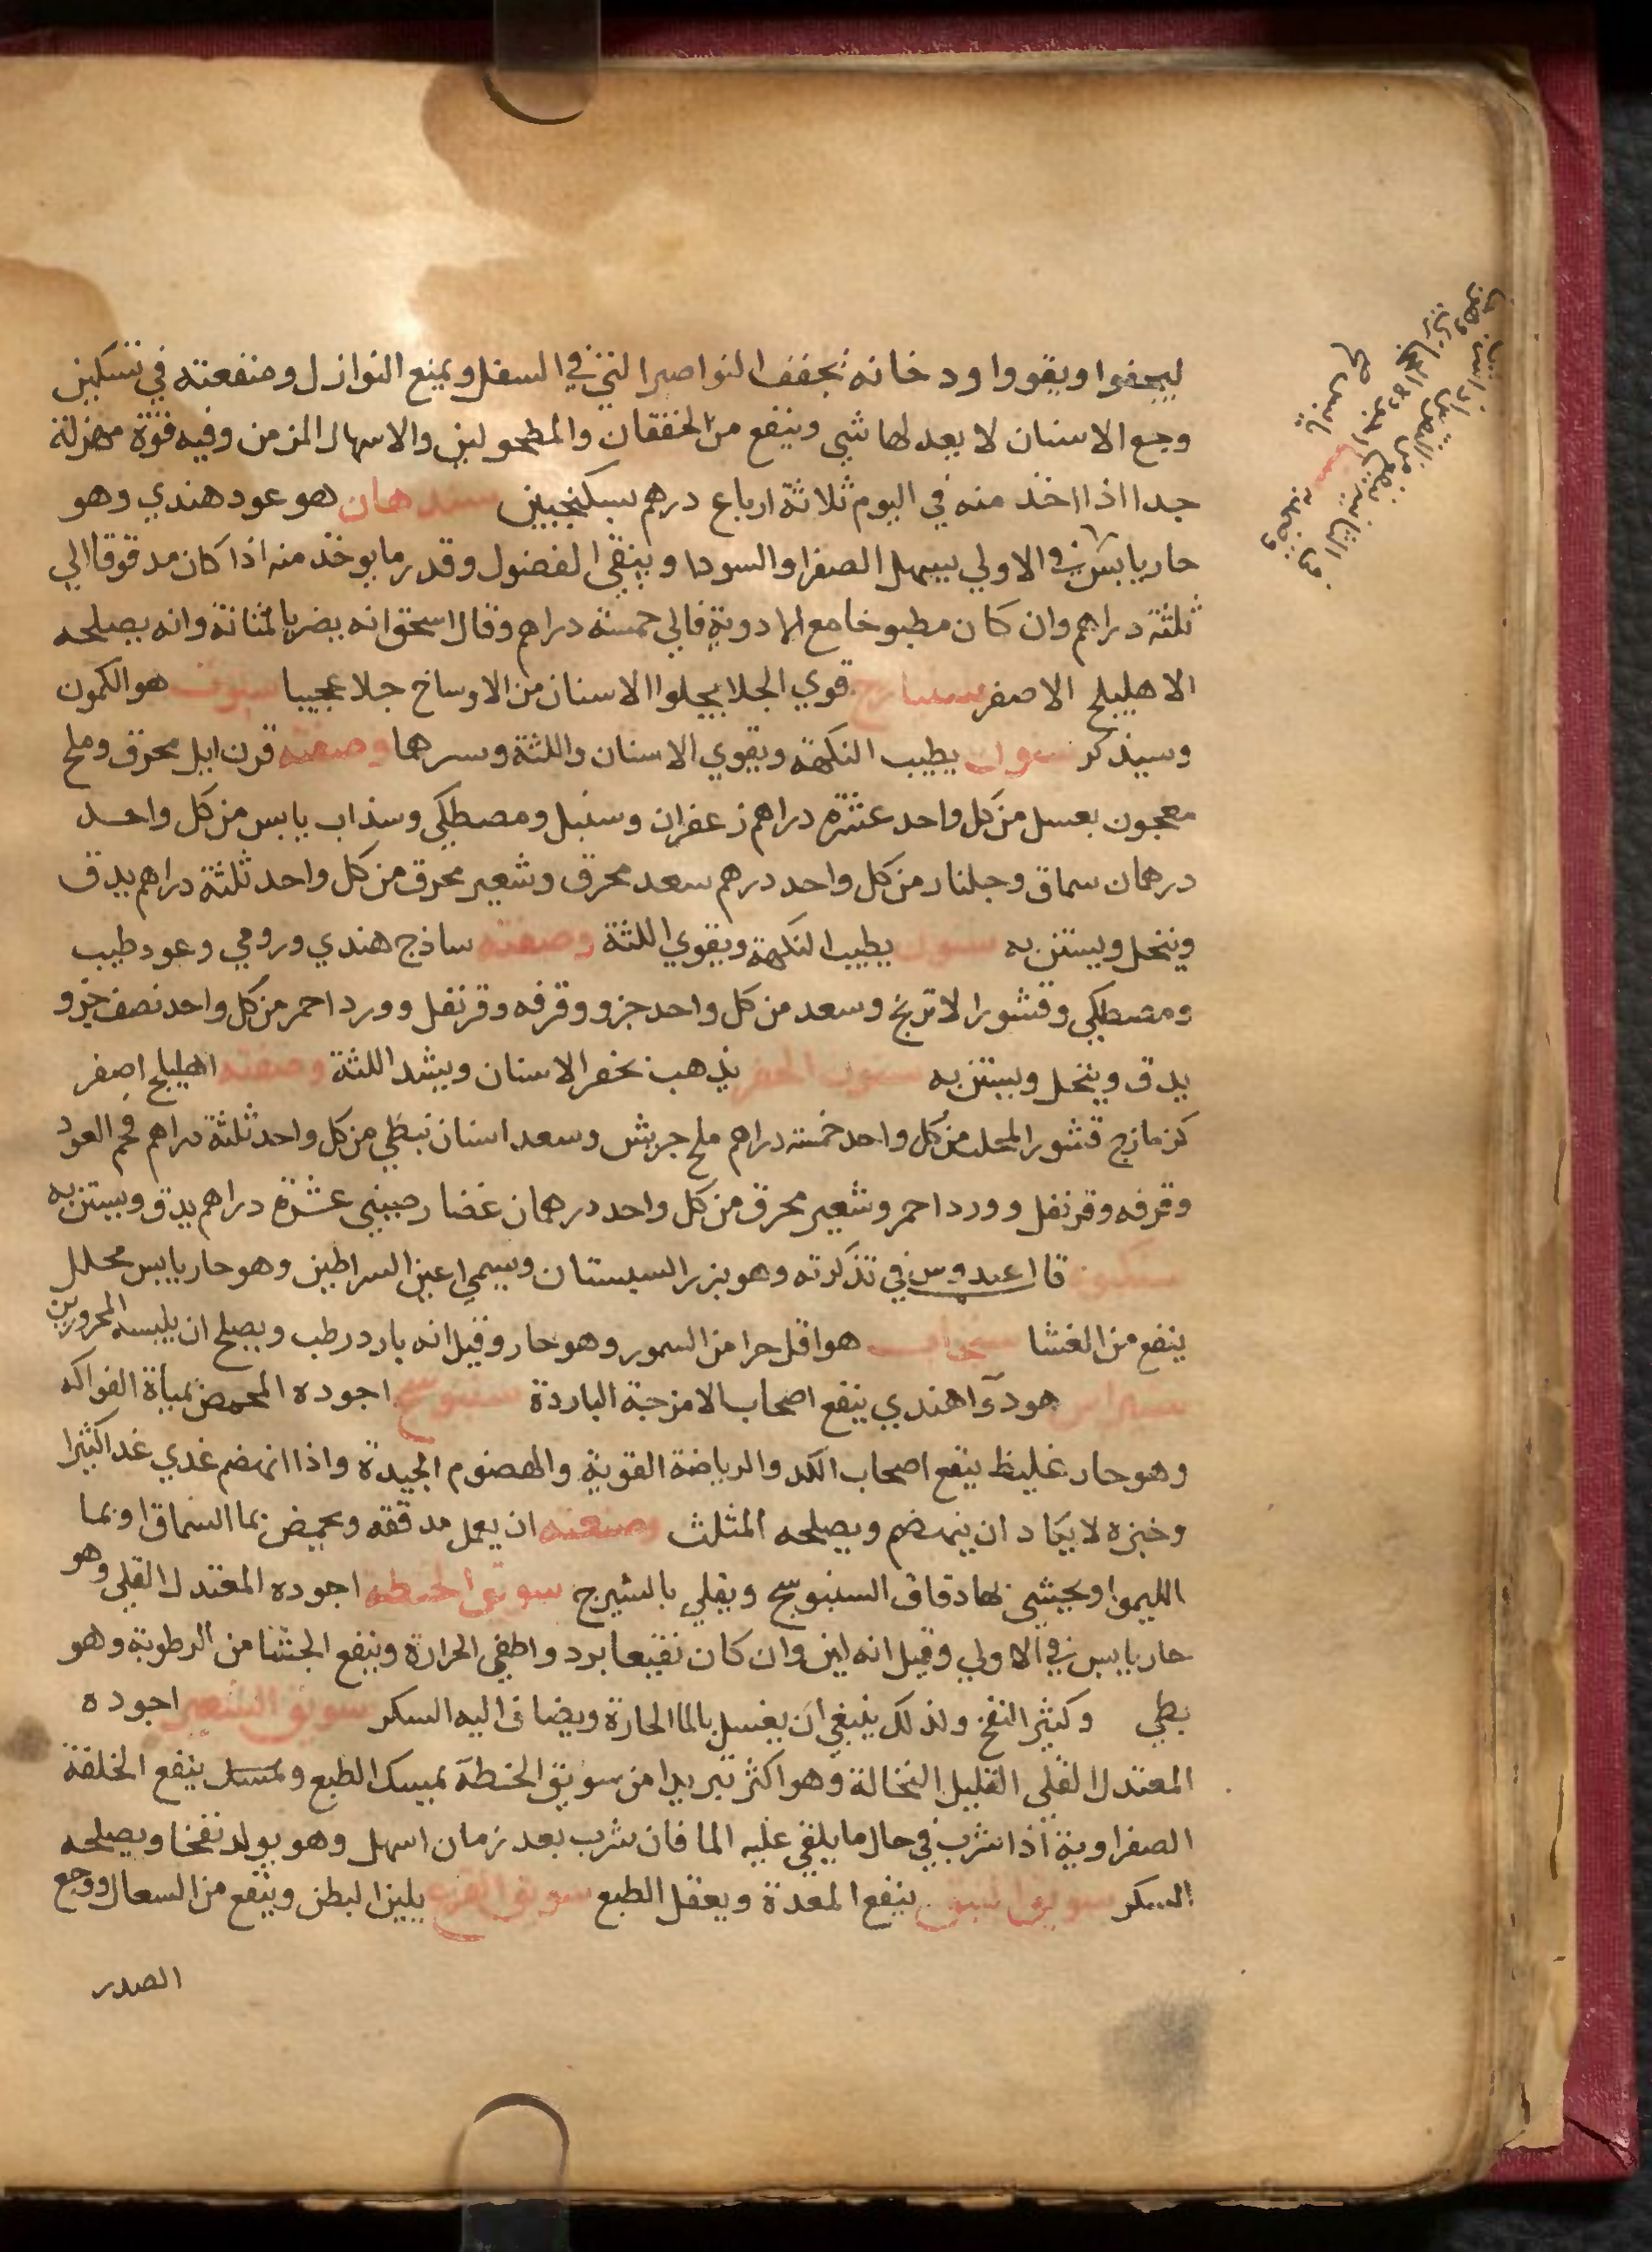 ليجفوا ويقووا ودخانه يجفف النواصير التي في السفل ويمنع النوازل ومنفعته في تسكين
وجع الاسنان لا يعد لها شي وينفع من الخفقان والمطحولين والاسهال المزمن وفيه قوة مهزلة
جدا اذا اخذ منه في اليوم ثلاثة ارباع درهم بسكنجبين سندهان هو عود هندي وهو
حار يابس في الاولي يسهل الصفرا والسودا وينقي الفضول وقدر ما يوخذ منه اذا كان مدقوقا الي
ثلثة دراهم وان كان مطبوخا مع الادوية فالي خمسة دراهم وقال اسحق انه يضر بالمثانة وانه يصلحه
الاهليلج الاصفر قوي الجلا يجلوا الاسنان من الاوساخ جلا عجيبا سنوت هو الكمون
وسيذكر سنون يطيب النكهة ويقوي الاسنان واللثة وسرهما وصفته قرن ايل محرق وملح
معجون بعسل من كل واحد عشرة دراهم زعفران وسنبل ومصطكي وسذاب يابس من كل واحد
درهمان سماق وجلنار من كل واحد درهم سعد محرق وشعير محرق من كل واحد ثلثة دراهم يدق
وينخل ويستن به سنون يطيب النكهة ويقوي اللثة وصفته ساذج هندي ورومي وعود طيب
ومصطكي وقشور الاترنج وسعد من كل واحد جزو وقرفه وقرنفل وورد احمر من كل واحد نصف جزو
يدق وينخل ويستن به سنون الحفر يذهب بحفر الاسنان ويشد اللثة وصفته اهليلج اصفر
كزمازج قشور المحلب من كل واحد خمسة دراهم ملح جريش وسعد اسنان نبطي من كل واحد ثلثة دراهم فحم العود
وقرفه وقرنفل وورد احمر وشعير محرق من كل واحد درهمان غضار صيني عشرة دراهم يدق ويستن به
قال عبدوس في تذكرته وهو بزر السيستان ويسمي اعين السراطين وهو حار يابس محلل
ينفع من الغشا سنجاب هو اقل حرا من السمور وهو حار وقيل انه بارد رطب ويصلح ان يلبسه المحرورين
هو دآ هندي ينفع اصحاب الامزجة الباردة سنبوسج اجوده المحمض بمياة الفواكه
وهو حار غليظ ينفع اصحاب الكد والرياضة القوية والهضوم الجيدة واذا انهضم غدي غدا كثيرا
وخبزه لا يكاد ان ينهضم ويصلحه المثلث وصنعته ان يعمل مدققه ويحمض بما السماق او بما
الليموا ويحيشي بها دقاق السنبوسج ويقلي بالشيرج سويق الحنطه اجوده المعتدل القلي وهو
حار يابس في الاولي وقيل انه لين وان كان نقيعا برد واطفي الحرارة وينفع الجشا من الرطوبة وهو
بطي وكثير النفخ ولذلك ينبغي ان يغسل بالما الحارة ويضاف اليه السكر سويق الشعير اجوده
المعتدل القلي القليل النخالة وهو اكثر تبريدا من سويق الحنطة يمسك الطبع ينفع الخلفة
الصفراوية اذا شرب في حال ما يلقي عليه الما فان شرب بعد زمان اسهل وهو يولد نفخا ويصلحه
السكر سويق النبق ينفع المعدة ويعقل الطبع سويق القرع يلين البطن وينفع من السعال ووجع
الصدر